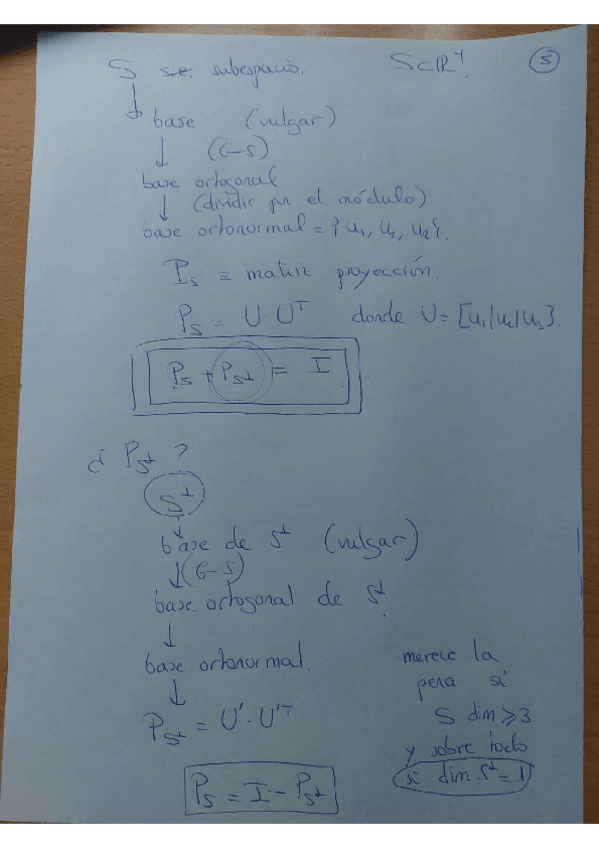 S s.e. subespacio. S⊂ℝ⁴. (5)
↓
base (vulgar)
↓ (G-S)
base ortogonal
↓ (dividir por el módulo)
base ortonormal = {u₁, u₂, u₂}.
P_S ≡ matriz proyección.
P_S = U · Uᵀ donde U = [u₁|u₂|u₃].
P_S + P_S⊥ = I
¿ P_S⊥ ?
S⊥
↓
base de S⊥ (vulgar)
↓ (G-S)
base ortogonal de S⊥.
↓
base ortonormal.
↓
P_S⊥ = U' · U'ᵀ
merece la
pena si
S dim ≥ 3
y sobre todo
si dim S⊥ = 1
P_S = I - P_S⊥